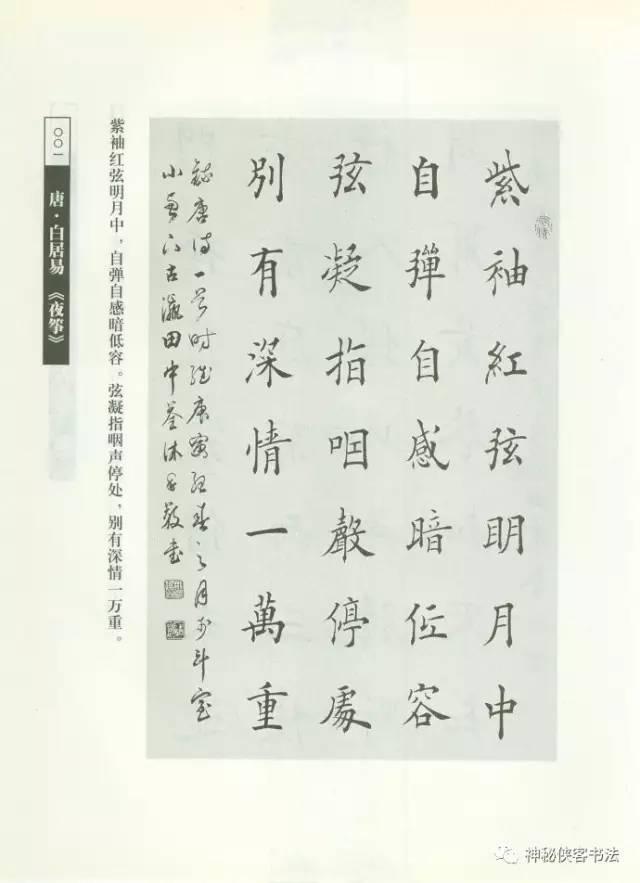 紫袖紅弦明月中
自彈自感暗低容
弦凝指咽聲停處
別有深情一萬重
錄唐詩一首時 庚寅 春之月於斗室
小 古瀛田中 沐手敬書
紫袖红弦明月中，自弹自感暗低容。弦凝指咽声停处，别有深情一万重。
〇〇一 唐·白居易 《夜筝》
神秘侠客书法